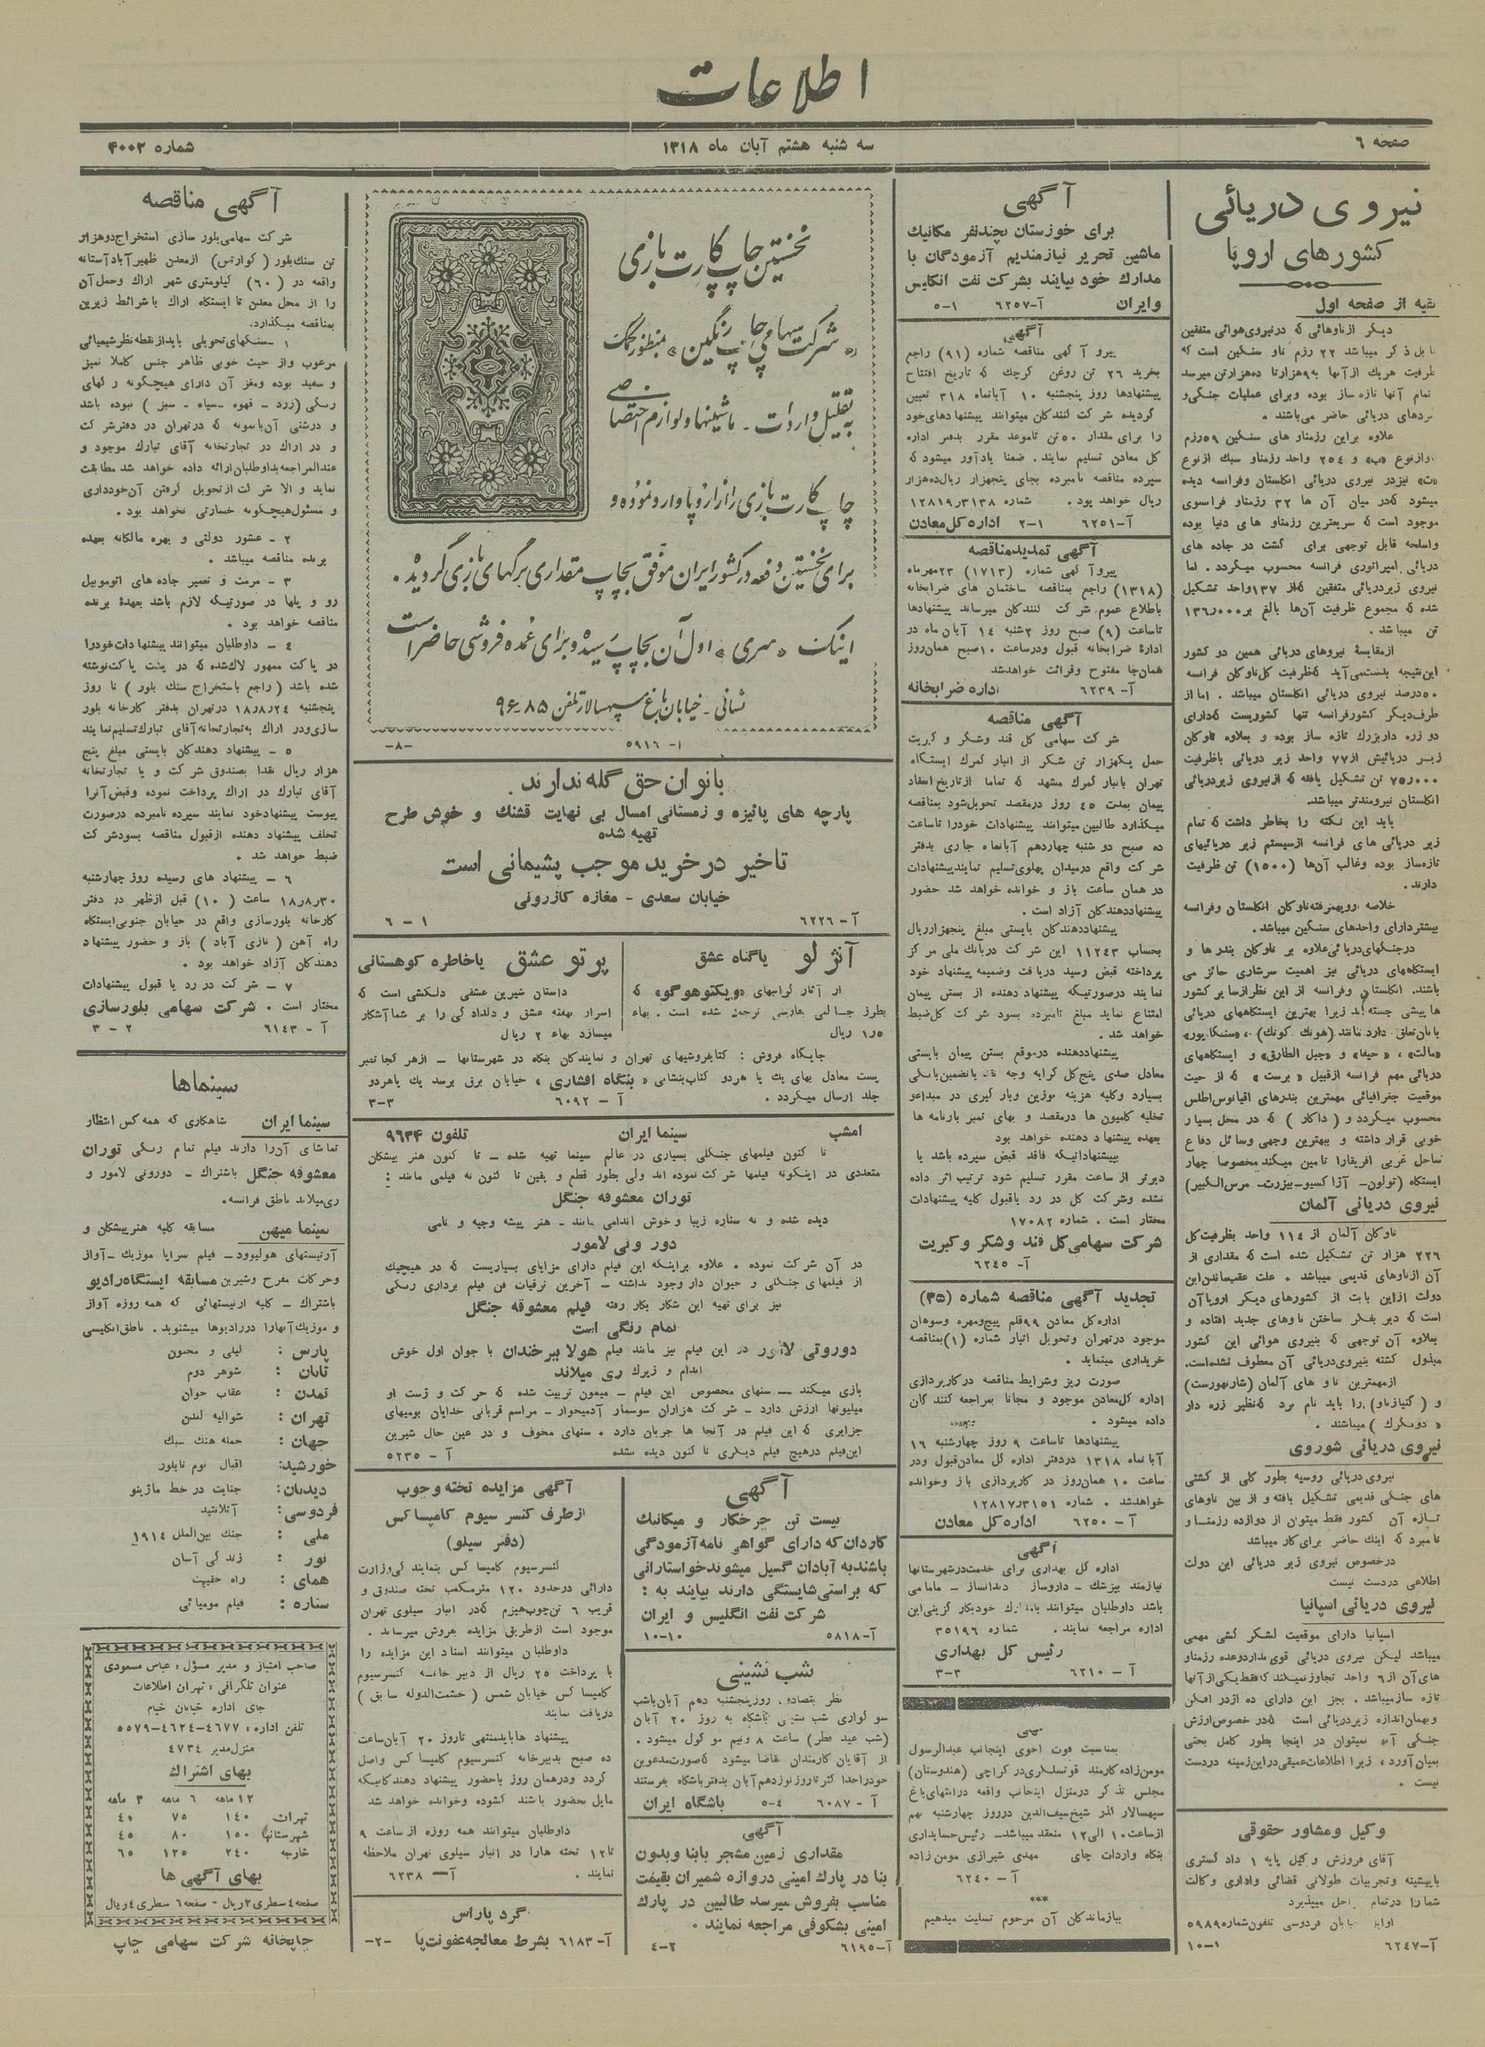 اطلاعات
صفحه ۶
سه شنبه هشتم آبان ماه ۱۳۱۸
شماره ۴۰۰۲
نیروی دریائی
کشورهای اروپا
بقیه از صفحه اول
دیگر از ناوهائی که در نیروی هوائی متفقین
قابل ذکر میباشد ۲۲ رزم ناو سنگین است که
ظرفیت هریک از آنها به ۹ هزار تا ده هزار تن میرسد
تمام آنها تازه ساز بوده و برای عملیات جنگی و
نبردهای دریائی حاضر می‌باشند .
علاوه براین رزمناو های سنگین ۵۹ رزم
ناو از نوع «ب» و ۲۵۴ واحد رزمناو سبک از نوع
«ث» نیز در نیروی دریائی انگلستان وفرانسه دیده
میشود که در میان آن ها ۳۲ رزمناو فرانسوی
موجود است که سریعترین رزمناو های دنیا بوده
واسلحه قابل توجهی برای گشت در جاده های
دریائی امپراتوری فرانسه محسوب میگردد . اما
نیروی زیر دریائی متفقین که از ۱۳۷ واحد تشکیل
شده که مجموع ظرفیت آن‌ها بالغ بر ۱۳۶٫۰۰۰
تن میباشد .
از مقایسهٔ نیروهای دریائی همین دو کشور
این نتیجه بدست می‌آید که ظرفیت کل ناوکان فرانسه
۵۰ درصد نیروی دریائی انگلستان میباشد . اما از
طرف دیگر کشور فرانسه تنها کشوریست که دارای
دو زره دار بزرگ تازه ساز بوده و بعلاوه ناوکان
زیر دریائیش از ۷۷ واحد زیر دریائی باظرفیت
۷۵٫۰۰۰ تن تشکیل یافته که از نیروی زیر دریائی
انگلستان نیرومندتر میباشد.
باید این نکته را بخاطر داشت که تمام
زیر دریائی های فرانسه از سیستم زیر دریائیهای
تازه‌ساز بوده وغالب آن‌ها (۱۵۰۰) تن ظرفیت
دارند .
خلاصه رویهمرفته ناوکان انگلستان وفرانسه
بیشتر دارای واحدهای سنگین میباشد.
در جنگهای دریائی علاوه بر ناوکان بندرها و
ایستگاههای دریائی نیز اهمیت سرشاری حائز می
باشند. انگلستان وفرانسه از این نظر از سایر کشور
ها پیشی جسته‌اند زیرا بهترین ایستگاههای دریائی
بآنان تعلق دارد مانند (هونك كونك) ، «سنگاپور»
«مالت» ، «حیفا» و «جبل الطارق» و ایستگاههای
دریائی مهم فرانسه از قبیل » برست « که از حیث
موقعیت جغرافیائی مهمترین بندرهای اقیانوس اطلس
محسوب میگردد و ( داکار ) که در محل بسیار
خوبی قرار داشته و بهترین وجهی وسائل دفاع
ساحل غربی افریقا را تامین میکند مخصوصا چهار
ایستگاه (تولون- آژاکسیو-بیزرت- مرس‌الکبیر)
نیروی دریائی آلمان
ناوکان آلمان از ۱۱۴ واحد بظرفیت کل
۲۲۶ هزار تن تشکیل شده است که مقداری از
آن از ناوهای قدیمی میباشد . علت عقب‌ماندن این
دولت از این بابت از کشورهای دیگر اروپا آن
است که دیر بفکر ساختن ناوهای جدید افتاده و
بعلاوه آن توجهی که بنیروی هوائی این کشور
مبذول گشته بنیروی دریائی آن معطوف نشده‌است.
از مهمترین ناو های آلمان (شارنهورست)
و ( گنیازناو) را باید نام برد که نظیر زره دار
« دونکرک » میباشند .
نیروی دریائی شوروی
نیروی دریائی روسیه بطور کلی از کشتی
های جنگی قدیمی تشکیل یافته و از بین ناوهای
تازه آن کشور فقط میتوان از دوازده رزمناو
نامبرد که اینک حاضر برای کار میباشد
در خصوص نیروی زیر دریائی این دولت
اطلاعی در دست نیست
نیروی دریائی اسپانیا
اسپانیا دارای موقعیت لشکر کشی مهمی
میباشد لیکن نیروی دریائی قوی ندارد وعده رزمناو
های آن از ۶ واحد تجاوز نمیکند که فقط یکی از آنها
تازه ساز میباشد . بجز این دارای ده اژدر افکن
وبهمان‌اندازه زیر دریائی است که در خصوص ارزش
جنگی آنها نمیتوان در اینجا بطور کامل بحثی
بمیان آورد ، زیرا اطلاعات عمیقی در این زمینه در دست
نیست .
وکیل ومشاور حقوقی
آقای فروزش وکیل پایه ۱ دادگستری
باپیشینه وتجربیات طولانی قضائی واداری وکالت
شما را در تمام مراحل میپذیرد
اوایل خیابان فردوسی تلفون شماره ۵۹۸۹
آ-۶۲۴۷
۱-۱۰
آگهی
برای خوزستان بچند نفر مکانیك
ماشین تحریر نیازمندیم آزمودگان با
مدارك خود بیایند بشرکت نفت انگلیس
وایران
آ-۶۲۵۷
۱-۵
آگهی
پیرو آگهی مناقصه شماره (۹۱) راجع
بخرید ۲۶ تن روغن کرچک که تاریخ افتتاح
پیشنهادها روز پنجشنبه ۱۰ آبانماه ۳۱۸ تعیین
گردیده شرکت کنندگان میتوانند پیشنهادهای خود
را برای مقدار ۵۰ تن تاموعد مقرر بدفتر اداره
کل معادن تسلیم نمایند. ضمنا یادآور میشود که
سپرده مناقصه نامبرده بجای پنجهزار ریال ده هزار
ریال خواهد بود . شماره ۱۲۸۱۹٫۳۱۳۸
آ-۶۲۵۱
۱-۲
اداره کل معادن
آگهی تمدید مناقصه
پیرو آگهی شماره (۱۷۱۳) ۲۳ مهرماه
(۱۳۱۸) راجع بمناقصه ساختمان های ضرابخانه
باطلاع عموم شرکت کنندگان میرساند پیشنهادها
تاساعت (۹) صبح روز ۲ شنبه ۱۴ آبان ماه در
ادارهٔ ضرابخانه قبول ودرساعت ۱۰ صبح همان‌روز
همان‌جا مفتوح وقرائت خواهدشد
آ- ۶۲۳۹
اداره ضرابخانه
آگهی مناقصه
شرکت سهامی کل قند وشکر و کبریت
حمل یکهزار تن شکر از انبار گمرک ایستگاه
تهران بانبار گمرک مشهد که تماما از تاریخ انعقاد
پیمان بمدت ۴۵ روز در مقصد تحویل شود بمناقصه
میگذارد طالبین میتوانند پیشنهادات خودرا تاساعت
ده صبح دو شنبه چهاردهم آبانماه جاری بدفتر
شرکت واقع درمیدان پهلوی تسلیم نمایند پیشنهادات
در همان ساعت باز و خوانده خواهد شد حضور
پیشنهاددهندگان آزاد است .
پیشنهاددهندگان بایستی مبلغ پنجهزار ریال
بحساب ۱۱۲۴۳ این شرکت دربانك ملی مرکز
پرداخته قبض رسید دریافت وضمیمه پیشنهاد خود
نمایند درصورتیکه پیشنهاد دهنده از بستن پیمان
امتناع نماید مبلغ نامبرده بسود شرکت کل ضبط
خواهد شد .
پیشنهاددهنده درموقع بستن پیمان بایستی
معادل صدی پنج کل کرایه وجه نقد یاتضمین بانکی
بسپارد وکلیه هزینه توزین وبار گیری در مبداءو
تخلیه کامیون ها درمقصد و بهای تمبر بارنامه ها
بعهده پیشنهاد دهنده خواهد بود
بپیشنهادانیکه فاقد قبض سپرده باشد یا
دیرتر از ساعت مقرر تسلیم شود ترتیب اثر داده
نشده وشرکت کل در رد یاقبول کلیه پیشنهادات
مختار است . شماره ۱۷۰۸۲
شرکت سهامی کل قند وشکر وکبریت
آ- ۶۲۴۵
تجدید آگهی مناقصه شماره (۳۵)
اداره کل معادن ۹۹ قلم پیچ ومهره وسوهان
موجود درتهران وتحویل انبار شماره (۱) بمناقصه
خریداری مینماید .
صورت ریز وشرایط مناقصه در کارپردازی
اداره کل معادن موجود و مجانا بمراجعه کنندگان
داده میشود .
پیشنهادها تاساعت ۹ روز چهارشنبه ۱۶
آبانماه ۱۳۱۸ دردفتر اداره کل معادن قبول ودر
ساعت ۱۰ همان‌روز در کارپردازی باز وخوانده
خواهدشد . شماره ۱۲۸۱۷٫۳۱۵۱
آ- ۶۲۵۰
اداره کل معادن
آگهی
اداره کل بهداری برای خدمت درشهرستانها
نیازمند پزشک - داروساز دندانساز - مامامی
باشد داوطلبان میتوانند بامدارک خود بکارگزینی این
اداره مراجعه نمایند . شماره ۳۵۱۹۶
رئیس کل بهداری
آ- ۶۲۱۰
۳-۳
بمناسبت فوت اخوی اینجانب عبدالرسول
مومن‌زاده کارمند قونسلگری در کراچی (هندوستان)
مجلس تذکر درمنزل اینجانب واقعه درانتهای باغ
سپهسالار گذر شیخ سیف‌الدین درروز چهارشنبه نهم
ازساعت ۱۰ الی ۱۲ منعقد میباشد- رئیس حسابداری
بنگاه واردات چای مهدی شیرازی مومن زاده
آ- ۶۲۴۰
***
ببازماندکان آن مرحوم تسلیت میدهیم
نخستین چاپ کارت بازی
«شرکت سهامی چاپ رنگین» بمنظور کمک
به تقلیل واردات - ماشینها ولوازم اختصاصی
چاپ کارت بازی را از اروپا وارد نموده و
برای نخستین دفعه در کشور ایران موفق بچاپ مقداری برگهای بازی گردید .
اینک «سری» اول آن بچاپ رسیده و برای عمده فروشی حاضر است
نشانی - خیابان باغ سپهسالار تلفن ۸۵-۹۶
آ- ۵۹۱۶
-۸-
بانوان حق گله ندارند .
پارچه های پائیزه و زمستانی امسال بی نهایت قشنك و خوش طرح
تهیه شده
تاخیر در خرید موجب پشیمانی است
خیابان سعدی - مغازه کازرونی
آ- ۶۲۲۶
۱-۶
آنژلو یاگناه عشق
از آثار گرانبهای «ویکتوهوگو» که
بطرز جالبی بفارسی ترجمه شده است . بهاء
۱٫۵ ریال
پرتو عشق یاخاطره کوهستانی
داستان شیرین عشقی دلکشی است که
اسرار نهفته عشق و دلدادگی را بر شما آشکار
میسازد بهاء ۲ ریال
جایگاه فروش : کتابفروشیهای تهران و نمایندگان بنگاه در شهرستانها - از هر کجا تمبر
پست معادل بهای یك یا هردو کتاب بنشانی «بنگاه افشاری» خیابان برق برسد یك یاهردو
جلد ارسال میگردد . آ- ۶۰۹۲
۳-۳
امشب
سینما ایران
تلفون ۹۶۳۴
تا کنون فیلمهای جنگلی بسیاری در عالم سینما تهیه شده - تا کنون هنر پیشگان
متعددی در اینگونه فیلمها شرکت نموده اند ولی بطور قطع و یقین تا کنون نه فیلمی مانند :
توران معشوقه جنگل
دیده شده و نه ستاره زیبا و خوش اندامی مانند - هنر پیشه وجیه و نامی
دوروتی لامور
در آن شرکت نموده . علاوه براینکه این فیلم دارای مزایای بسیاریست که در هیچیک
از فیلمهای جنگلی و حیوان دار وجود نداشته - آخرین ترقیات فن فیلم برداری رنگی
نیز برای تهیه این شکار بکار رفته فیلم معشوقه جنگل
تمام رنگی است
دوروتی لامور در این فیلم نیز مانند فیلم هولا ببرخندان با جوان اول خوش
اندام و زیرک ری میلاند
بازی میکند - سنهای مخصوص این فیلم - میمون تربیت شده که حرکت و ژست او
میلیونها ارزش دارد - شرکت هزاران سوسمار آدمیخوار - مراسم قربانی خدایان بومیهای
جزایری که این فیلم در آنجا ها جریان دارد . سنهای مخوف و در عین حال شیرین
این‌فیلم درهیچ فیلم دیگری تا کنون دیده نشده
آ- ۵۲۳۵
آگهی
بیست تن چرخکار و میکانیك
کاردان که دارای گواهی نامه آزمودگی
باشند به آبادان گسیل میشوند خواستارانی
که براستی شایستگی دارند بیایند به :
شرکت نفت انگلیس و ایران
آ-۵۸۱۸
۱۰-۱۰
شب نشینی
نظر بتصادف روز پنجشنبه دهم آبان باشب
سوگواری شب نشینی باشگاه به روز ۲۰ آبان
(شب عید فطر) ساعت ۸ ونیم موکول میشود .
از آقایان کارمندان تقاضا میشود که صورت مدعوین
خود را حداکثر تا روز نوزدهم آبان بدفتر باشگاه بفرستند
آ- ۶۰۸۷
۴-۵
باشگاه ایران
آگهی
مقداری زمین مشجر بابنا وبدون
بنا در پارك امینی دروازه شمیران بقیمت
مناسب بفروش میرسد طالبین در پارك
امینی بشکوفی مراجعه نمایند .
آ-۶۱۹۵
۲-۴
آگهی مزایده تخته وچوب
ازطرف کنسرسیوم کامپساکس
(دفتر سیلو)
کنسرسیوم کامپسا کس بنمایندگی وزارت
دارائی درحدود ۱۲۰ مترمکعب تخته صندوق و
قریب ۶ تن چوب هیزم که در انبار سیلوی تهران
موجود است از طریق مزایده بفروش میرساند .
داوطلبان میتوانند اسناد این مزایده را
با پرداخت ۲۵ ریال از دبیرخانه کنسرسیوم
کامپسا کس خیابان شمس ( حشمت الدوله سابق )
دریافت نمایند
پیشنهاد ها باید منتهی تا روز ۲۰ آبان ساعت
ده صبح بدبیرخانه کنسرسیوم کامپساکس واصل
گردد ودرهمان روز باحضور پیشنهاد دهندگانیکه
مایل بحضور باشند گشوده وخوانده خواهد شد
داوطلبان میتوانند همه روزه از ساعت ۹
تا ۱۲ تخته هارا در انبار سیلوی تهران ملاحظه
نمایند .
آ- ۶۲۳۸
گرد پاراس
آ- ۶۱۸۳
بشرط معالجه عفونت پا
-۲-
آگهی مناقصه
شرکت سهامی بلور سازی استخراج دو هزار
تن سنك بلور ( کوارتس) از معدن ظهیر آباد آستانه
واقعه در (۶۰) کیلومتری شهر اراك وحمل آن
را از محل معدن تا ایستگاه اراك با شرائط زیرین
بمناقصه میگذارد.
۱ -سنگهای تحویلی باید از نقطه نظر شیمیائی
مرغوب واز حیث خوبی ظاهر جنس کاملا تمیز
و سفید بوده ومغز آن دارای هیچگونه رگهای
رنگی (زرد - قهوه - سیاه - سبز ) نبوده باشد
و درشتی آن بانمونه که در تهران در دفتر شرکت
و در اراك در تجارتخانه آقای تبارك موجود و
عندالمراجعه بداوطلبان ارائه داده خواهد شد مطابقت
نماید و الا شرکت از تحویل گرفتن آن خودداری
و مسئول هیچگونه خسارتی نخواهد بود .
۲ - عشور دولتی و بهره مالکانه بعهده
برنده مناقصه میباشد .
۳ - مرمت و تعمیر جاده های اتوموبیل
رو و پلها در صورتیکه لازم باشد بعهدهٔ برنده
مناقصه خواهد بود .
۴ - داوطلبان میتوانند پیشنهادات خود را
در پاکت ممهور لاك شده که در پشت پاکت نوشته
شده باشد (راجع باستخراج سنك بلور ) تا روز
پنجشنبه ۱۸٫۸٫۲۴ در تهران بدفتر کارخانه بلور
سازی ودر اراك به تجارتخانه آقای تبارك تسلیم نمایند
۵ - پیشنهاد دهندگان بایستی مبلغ پنج
هزار ریال نقدا بصندوق شرکت و یا تجارتخانه
آقای تبارك در اراك پرداخت نموده وقبض آنرا
پیوست پیشنهاد خود نمایند سپرده نامبرده درصورت
تخلف پیشنهاد دهنده از قبول مناقصه بسود شرکت
ضبط خواهد شد .
۶ - پیشنهاد های رسیده روز چهارشنبه
۱۸٫۸٫۳۰ ساعت (۱۰) قبل از ظهر در دفتر
کارخانه بلورسازی واقع در خیابان جنوبی ایستگاه
راه آهن ( نازی آباد ) باز و حضور پیشنهاد
دهندگان آزاد خواهد بود .
۷ - شرکت در رد یا قبول پیشنهادات
مختار است . شرکت سهامی بلورسازی
آ- ۶۱۴۳
۲-۳
سینماها
سینما ایران شاهکاری که همه کس انتظار
تماشای آن‌را دارند فیلم تمام رنگی توران
معشوقه جنگل باشتراك - دوروتی لامور و
ری میلاند ناطق فرانسه.
سینما میهن مسابقه کلیه هنرپیشگان و
آرتیستهای هولیوود- فیلم سراپا موزیك - آواز
وحرکات مفرح وشیرین مسابقه ایستگاه رادیو
باشتراك - کلیه ارتیستهائی که همه روزه آواز
و موزیك آنهارا دررادیوها میشنوید . ناطق انگلیسی
پارس : لیلی و مجنون
تابان : شوهر دوم
تمدن : عقاب جوان
تهران : شوالیه لندن
جهان : حمله هنك سبك
خورشید: اقبال توم تایلور
دیدبان: جنایت در خط ماژینو
فردوسی: آتلانتید
ملی : جنك بین الملل ۱۹۱۴
نور : زندگی آسان
همای : راه حقیقت
ستاره : فیلم مومیائی
صاحب امتیاز و مدیر مسؤل : عباس مسعودی
عنوان تلگرافی : تهران اطلاعات
جای اداره خیابان خیام
تلفن اداره : ۴۶۷۷-۴۶۲۴-۵۵۷۹
منزل مدیر ۴۷۳۴
بهای اشتراك
۱۲ ماهه ۶ ماهه ۳ ماهه
تهران ۱۴۰ ۷۵ ۴۰
شهرستانها ۱۵۰ ۸۰ ۴۵
خارجه ۲۴۰ ۱۲۵ ۶۵
بهای آگهی ها
صفحه ۴ سطری ۲ ریال - صفحه ۶ سطری ۴ ریال
چاپخانه شرکت سهامی چاپ